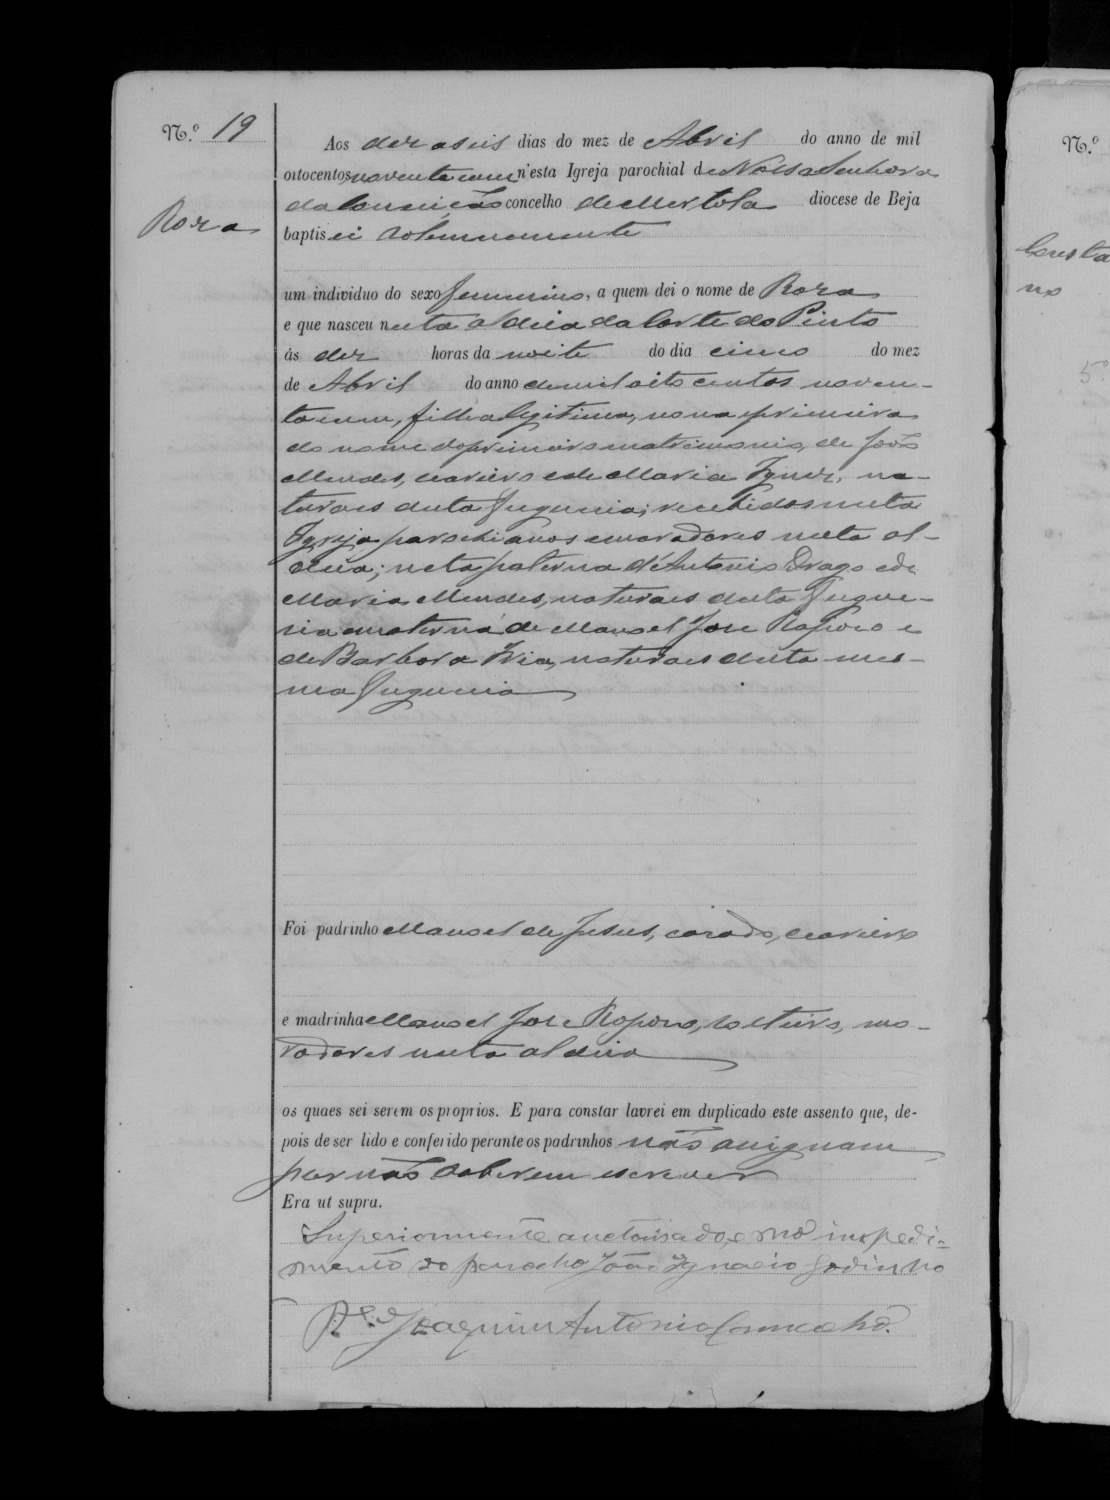 N.º 19
Aos dezaseis dias do mez de Abril do anno de mil
oitocentos noventa e um n'esta Igreja parochial de Nossa Senhora
da Conceição concelho de Mertola diocese de Beja
Rosa
baptisei solemnemente
um individuo do sexo femenino, a quem dei o nome de Rosa
e que nasceu nesta aldeia da Corte do Pinto
ás dez horas da noite do dia cinco do mez
de Abril do anno de mil oito centos noven-
ta e um, filha legitima, nona primeira
do nome do primeiro matrimonio, de João
Mendes, e de Maria Ignez, na-
turaes desta freguesia; recebidos nesta
Igreja parochianos e moradores nesta al-
deia; neta paterna d'Antonio Drago e de
Maria Mendes, naturaes desta fregue-
sia e materna de Manoel Jose Raposo e
de Barbora Iria, naturaes desta mes-
ma freguesia
Foi padrinho Manoel de Jesus, casado,
e madrinha Manoel Jose Raposo, solteiro, mo-
radores nesta aldeia
os quaes sei serem os proprios. E para constar lavrei em duplicado este assento que, de-
pois de ser lido e conferido perante os padrinhos não assignam
por não saberem escrever
Era ut supra.
Superiormente auctorisado, e no impedi-
mento do parocho João Ignacio Godinho
P.e Joaquim Antonio
N.º
Consta
no
5º